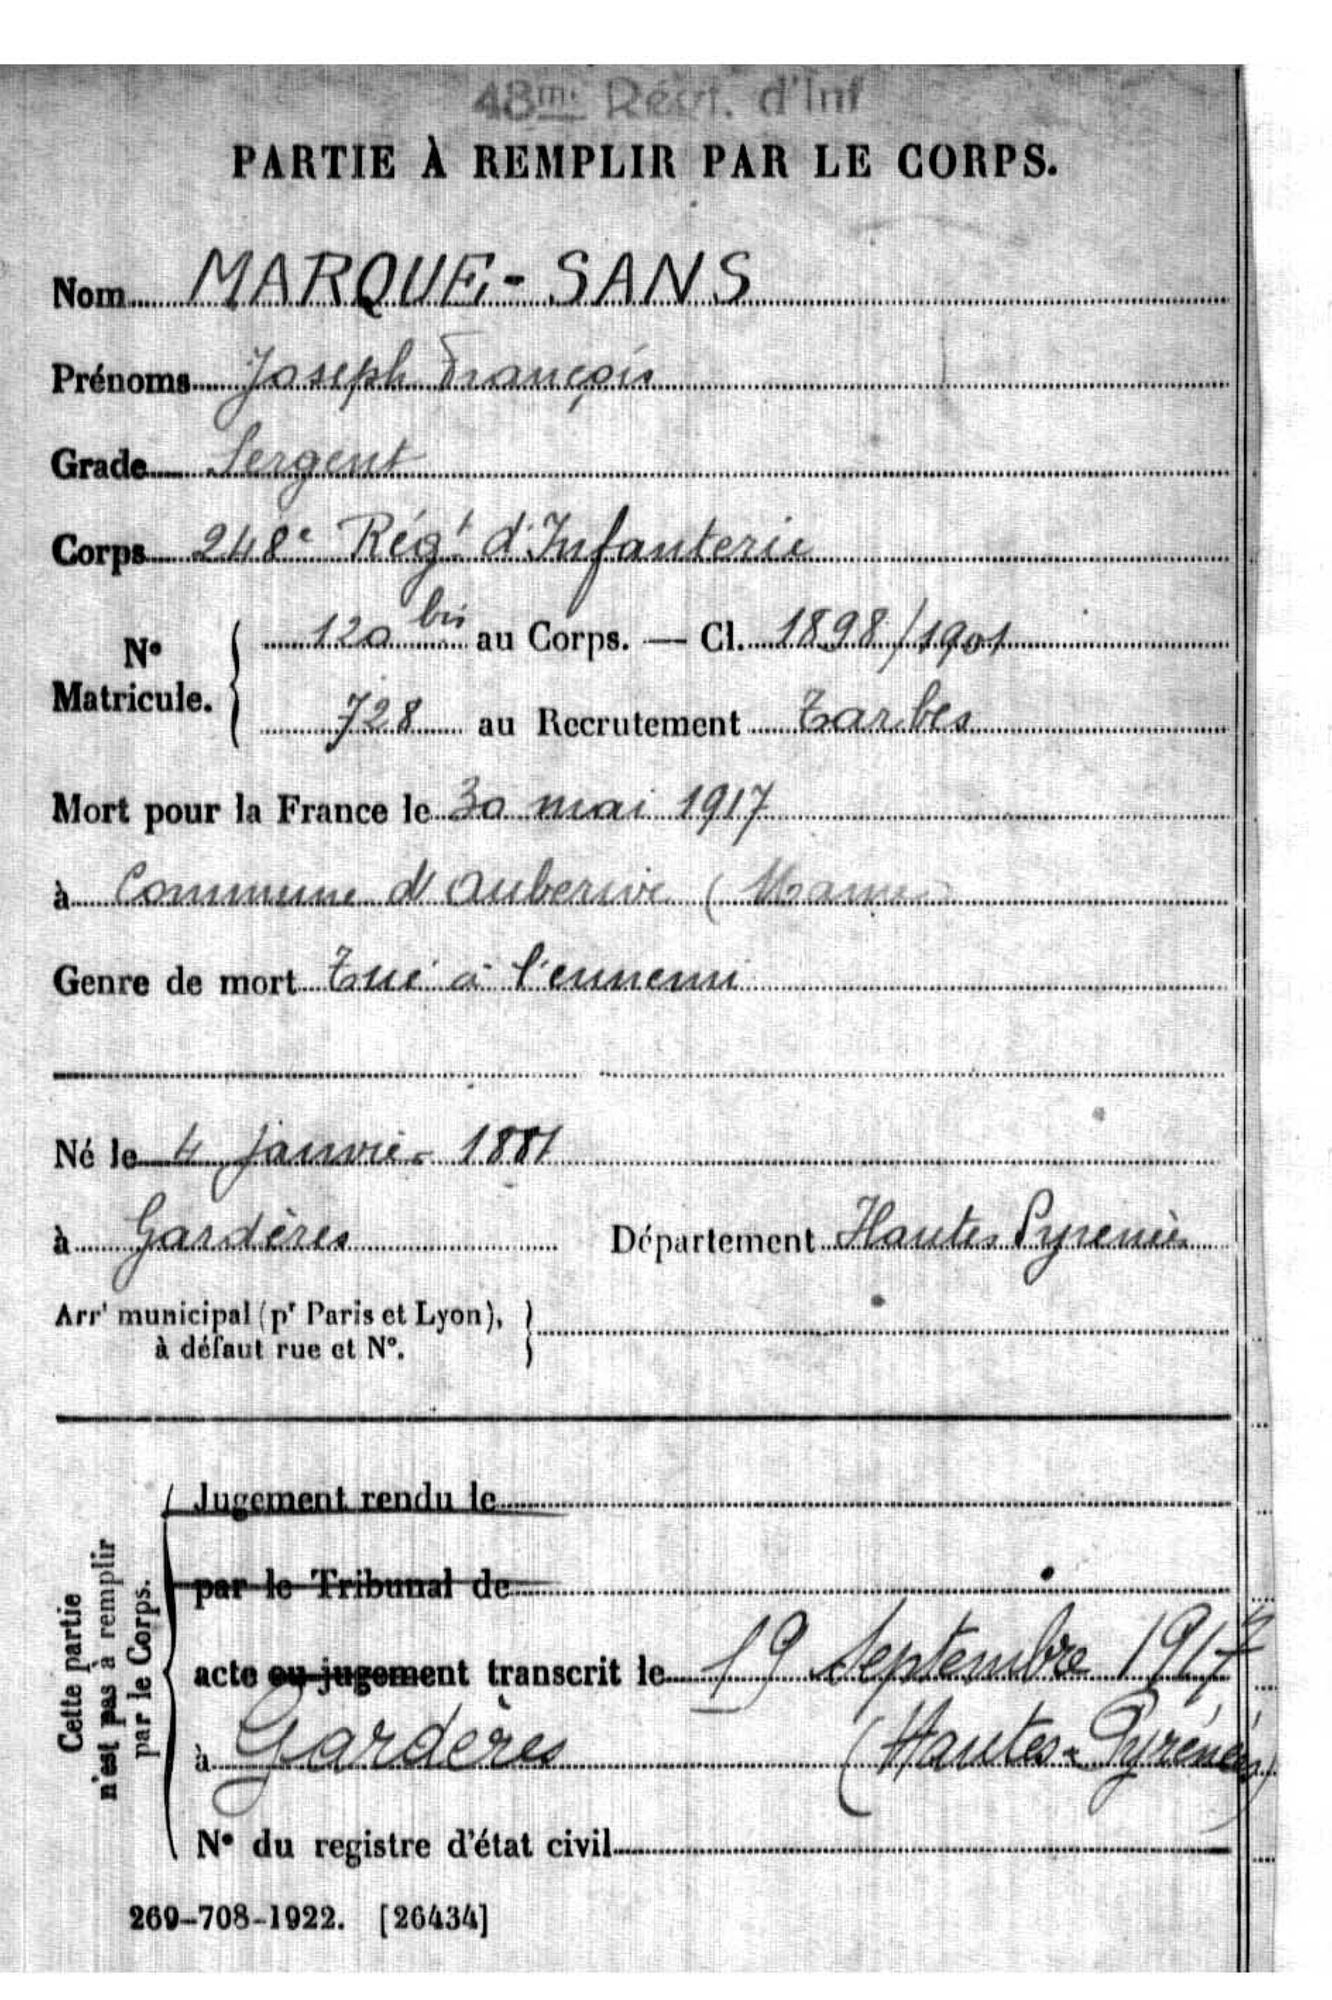 48me Régt. d'Inf
PARTIE À REMPLIR PAR LE CORPS.
Nom MARQUE-SANS
Prénoms Joseph François
Grade Sergent
Corps 248e Régt d'Infanterie
No Matricule. { 120 bis au Corps. — Cl. 1898/1901
728 au Recrutement Tarbes
Mort pour la France le 30 mai 1917
à Commune d'Auberive (Marne)
Genre de mort Tué à l'ennemi
Né le 4 janvier 1881
à Gardères Département Hautes Pyrénées
Arrt municipal (pr Paris et Lyon), }
à défaut rue et No.
Cette partie
n'est pas à remplir
par le Corps.
Jugement rendu le
par le Tribunal de
acte ou jugement transcrit le 19 Septembre 1917
à Gardères (Hautes-Pyrénées)
No du registre d'état civil
269-708-1922. [26434]